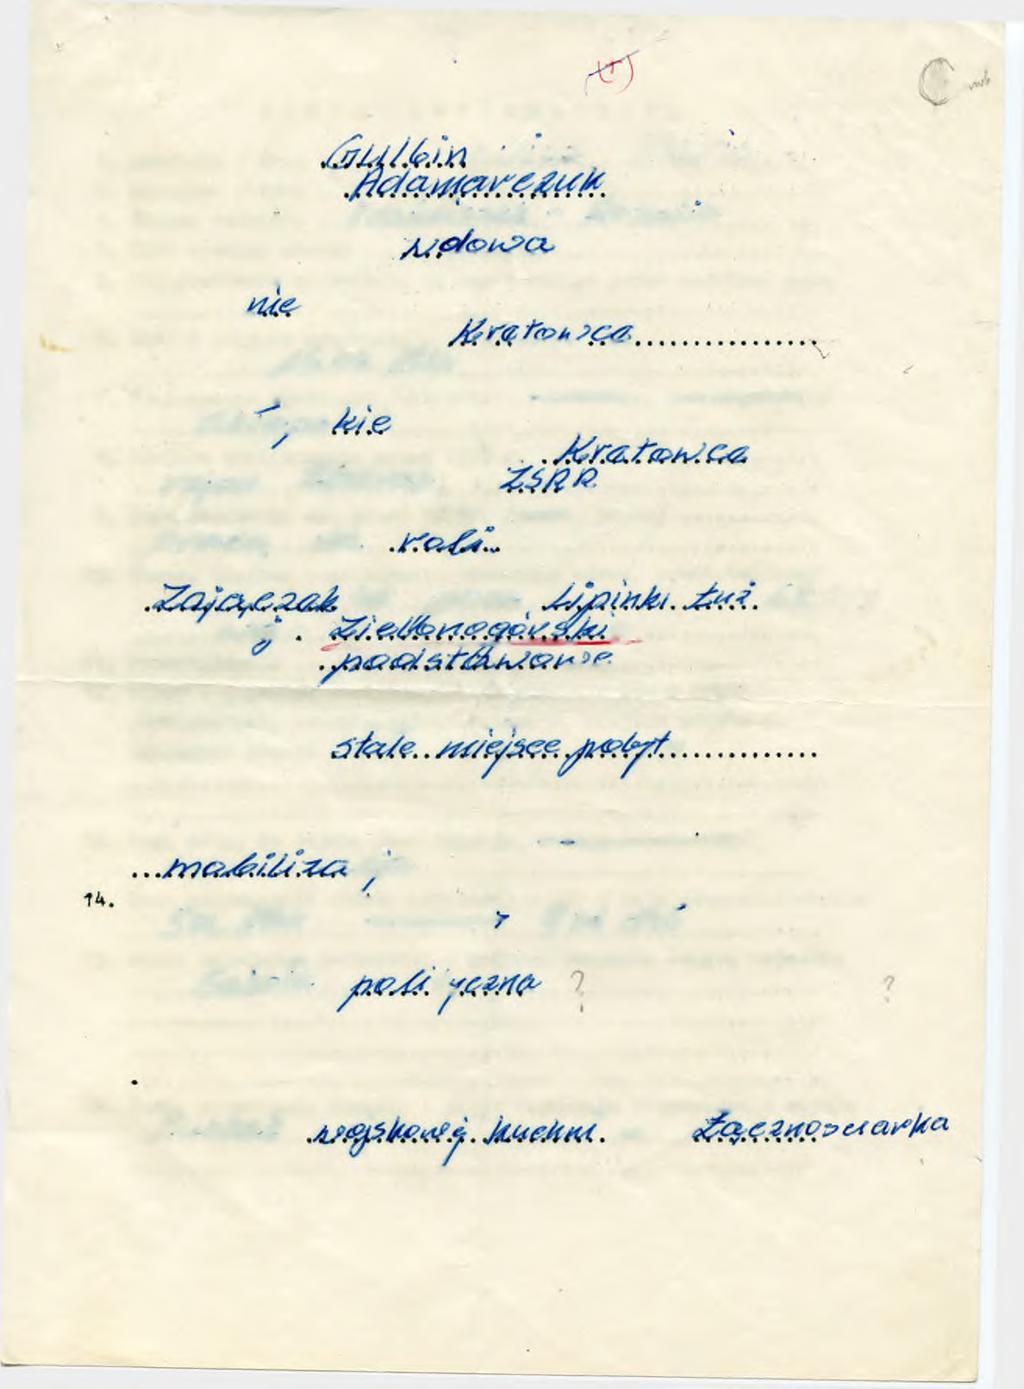 (+)
Gulbin
Adamarczuk
wdowa
nie
Kratowca
, kie
Kratowca
ZSRR
rali
Zajączak Lipinki Łuż.
j. Zielłonogórski
podstawowe
stałe miejsce pobyt
mobiliza j
14.
poli yczna ? ?
wojskowej kuchni. Łącznościarka